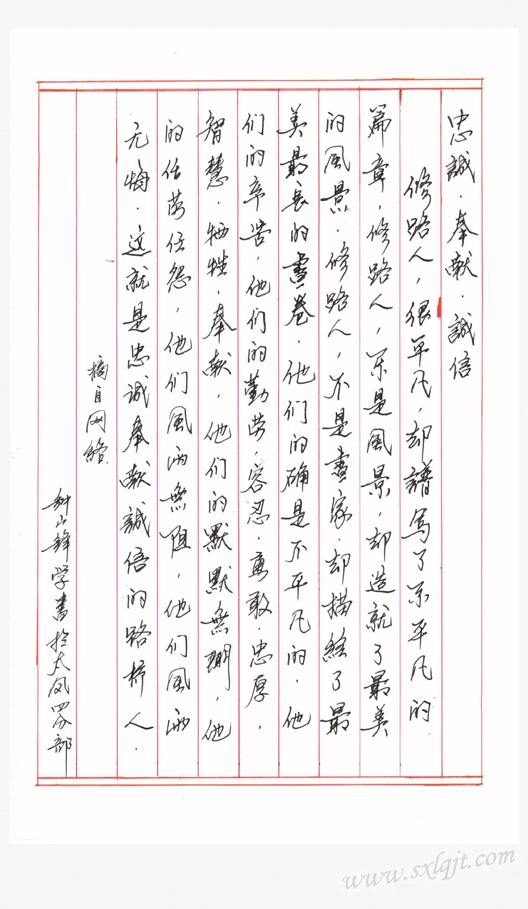 忠誠．奉献．誠信
修路人，很平凡，却譜写了不平凡的
篇章，修路人，不是風景，却造就了最美
的風景．修路人，不是畫家．却描繪了最
美最長的畫卷．他们的确是不平凡的．他
们的辛苦，他们的勤劳，容忍．勇敢．忠厚．
智慧．牺牲，奉献，他们的默默無聞，他
的任劳任怨，他们風雨無阻，他们風雨
无悔．这就是忠诚奉献誠信的路桥人．
摘自网络
山鋒学書於太凤四分部
www.sxlqjt.com